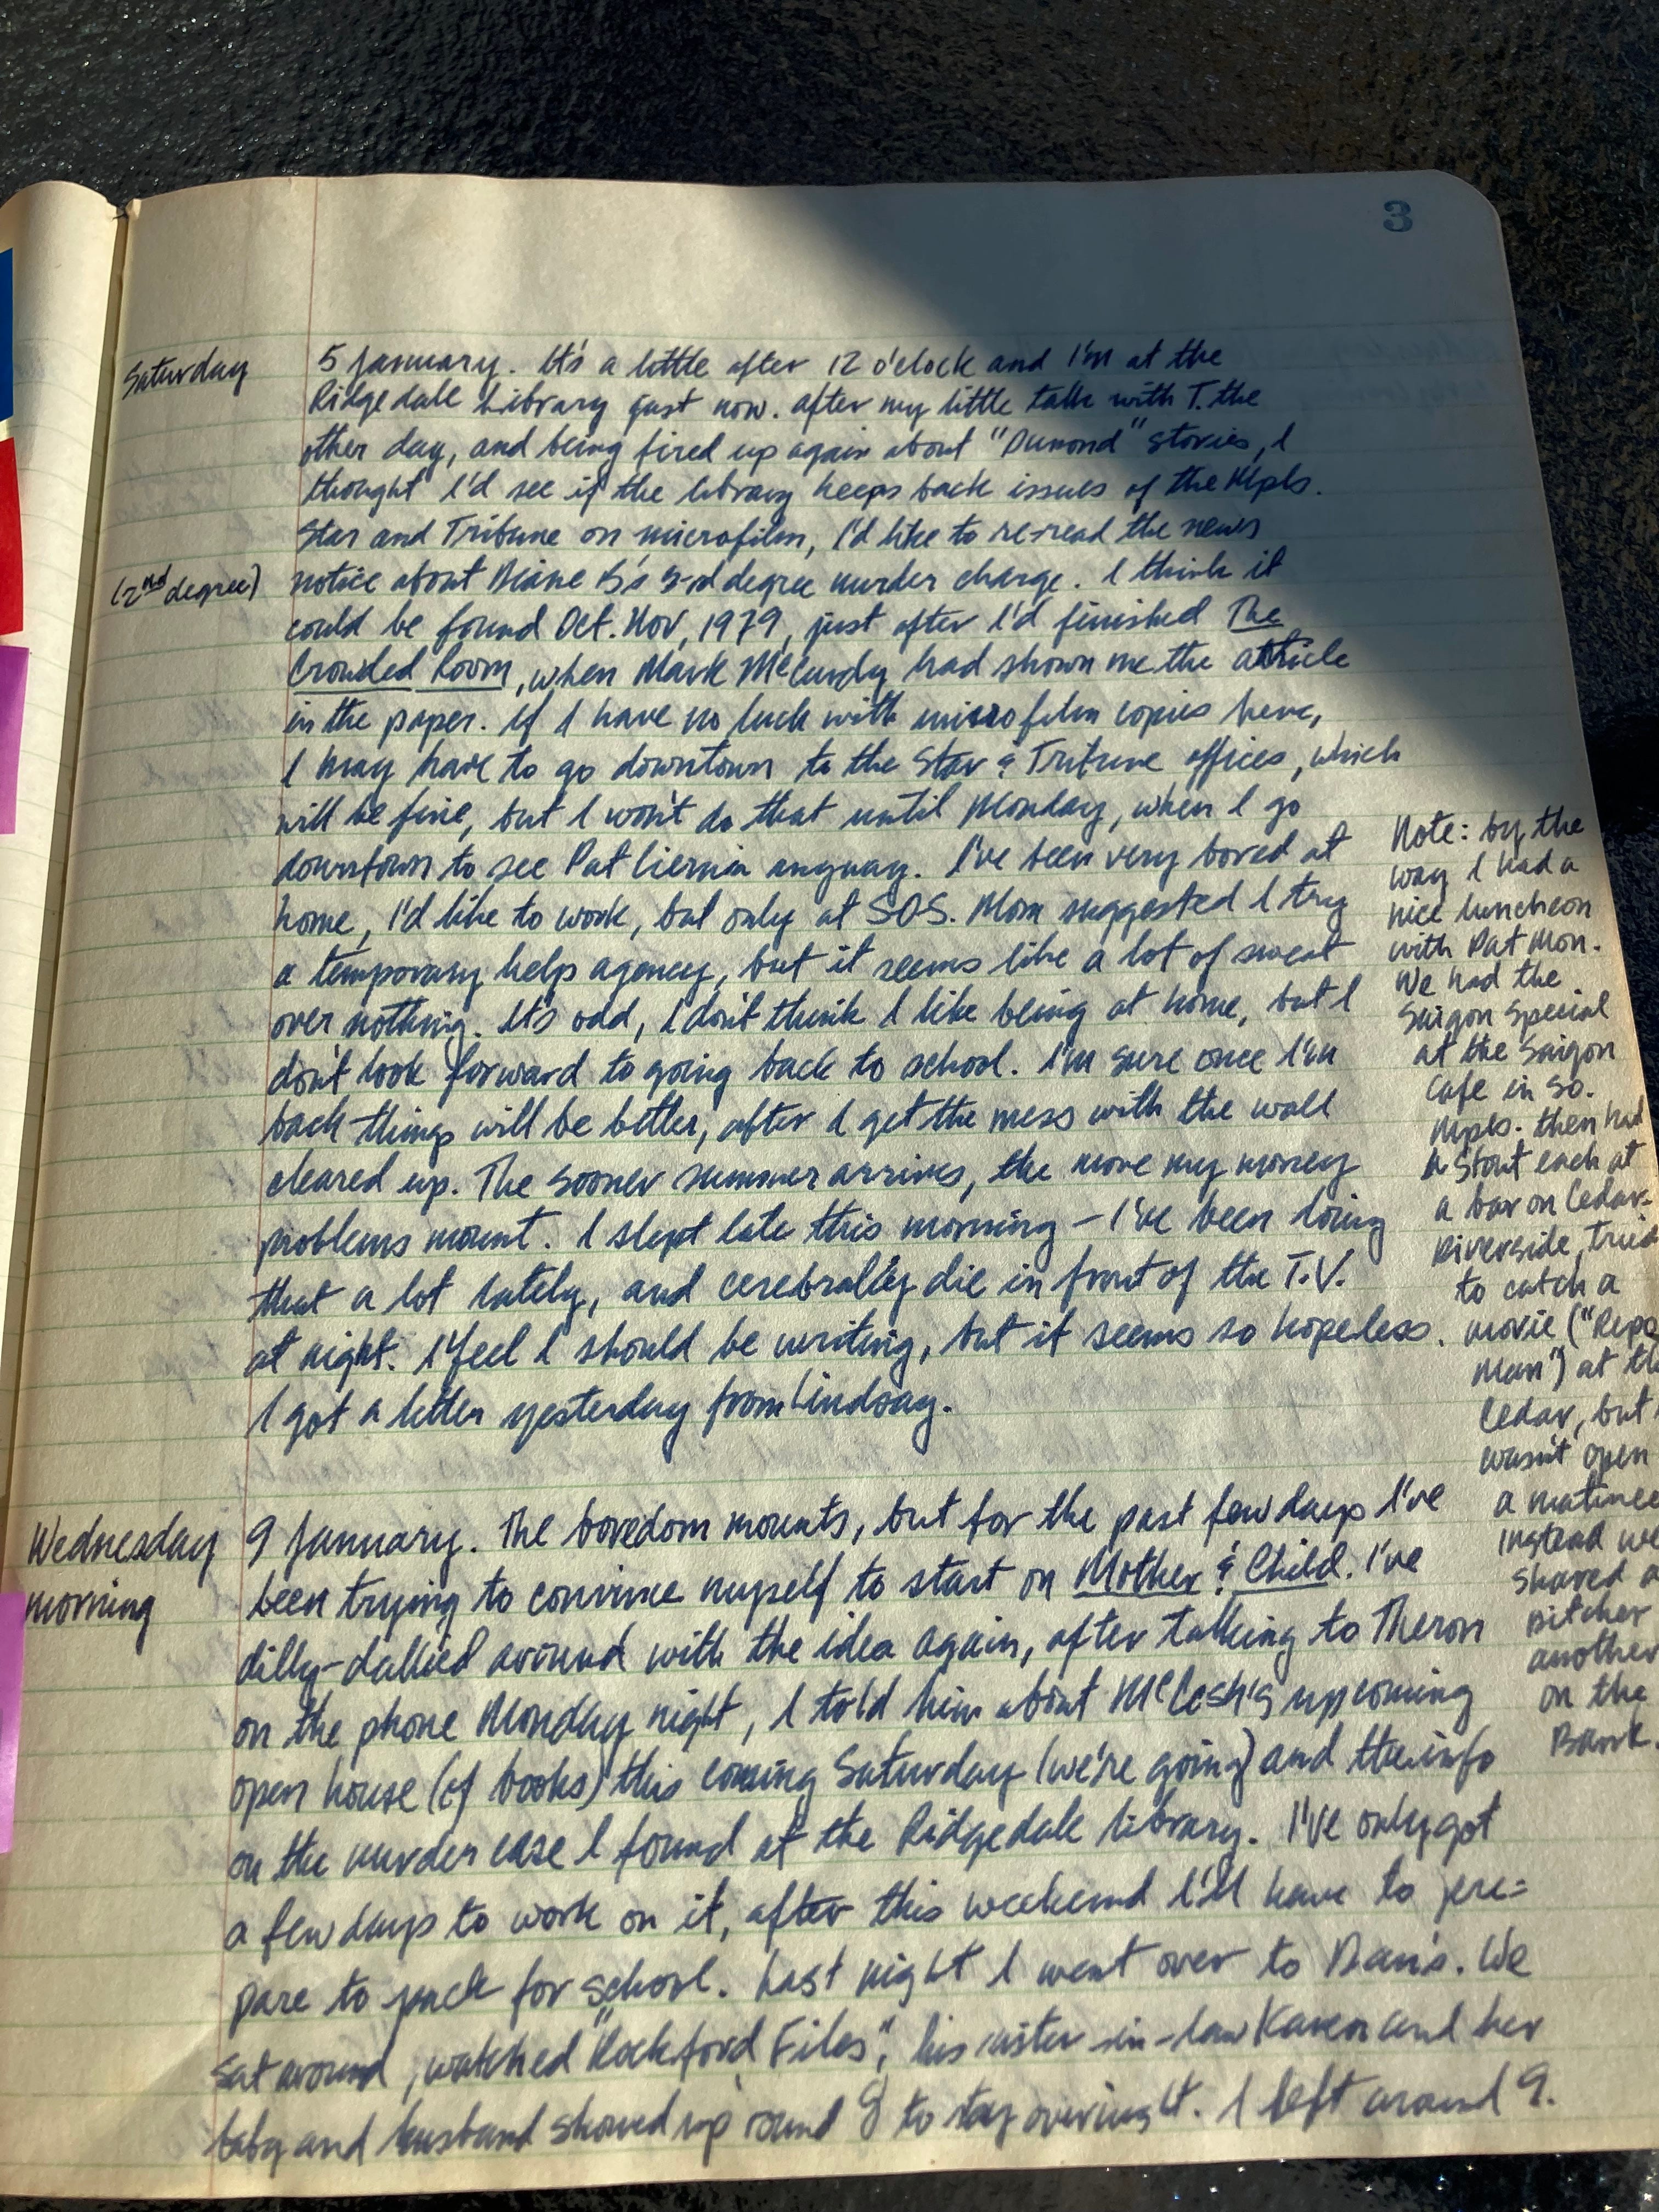 3
Saturday
5 January. It's a little after 12 o'clock and I'm at the
Ridgedale Library just now. After my little talk with T. the
other day, and being fired up again about "Dumond" stories, I
thought I'd see if the library keeps back issues of the Mpls.
Star and Tribune on microfilm, I'd like to re-read the news
(2nd degree)
notice about Diane B's degree murder charge. I think it
could be found Oct. Nov, 1979, just after I'd finished The
Crowded Room, when Mark McCurdy had shown me the article
in the paper. If I have no luck with microfilm copies here,
I may have to go downtown to the Star & Tribune offices, which
will be fine, but I won't do that until Monday, when I go
downtown to see Pat anyway. I've been very bored at
home, I'd like to work, but only at SOS. Mom suggested I try
a temporary help agency, but it seems like a lot of sweat
over nothing. It's odd, I don't think I like being at home, but I
don't look forward to going back to school. I'm sure once I'm
back things will be better, after I get the mess with the wall
cleared up. The sooner summer arrives, the more my money
problems mount. I slept late this morning – I've been doing
that a lot lately, and cerebrally die in front of the T.V.
at night. I feel I should be writing, but it seems so hopeless.
I got a letter yesterday from Lindsay.
Note: by the
way I had a
nice luncheon
with Pat Mon.
We had the
Saigon Special
at the Saigon
Cafe in So.
Mpls. then had
a stout each at
a bar on Cedar-
Riverside, tried
to catch a
movie ("Repo
Man") at the
Cedar, but
wasn't open
a matinee
instead we
shared a
pitcher
another
on the
Bank.
Wednesday
morning
9 January. The boredom mounts, but for the past few days I've
been trying to convince myself to start on Mother & Child. I've
dilly-dallied around with the idea again, after talking to Theron
on the phone Monday night, I told him about McCosh's upcoming
open house (of books) this coming Saturday (we're going) and the info
on the murder case I found at the Ridgedale library. I've only got
a few days to work on it, after this weekend I'll have to pre=
pare to pack for school. Last night I went over to Dan's. We
sat around, watched "Rockford Files", his sister-in-law Karen and her
baby and husband showed up round 8 to stay overnight. I left around 9.